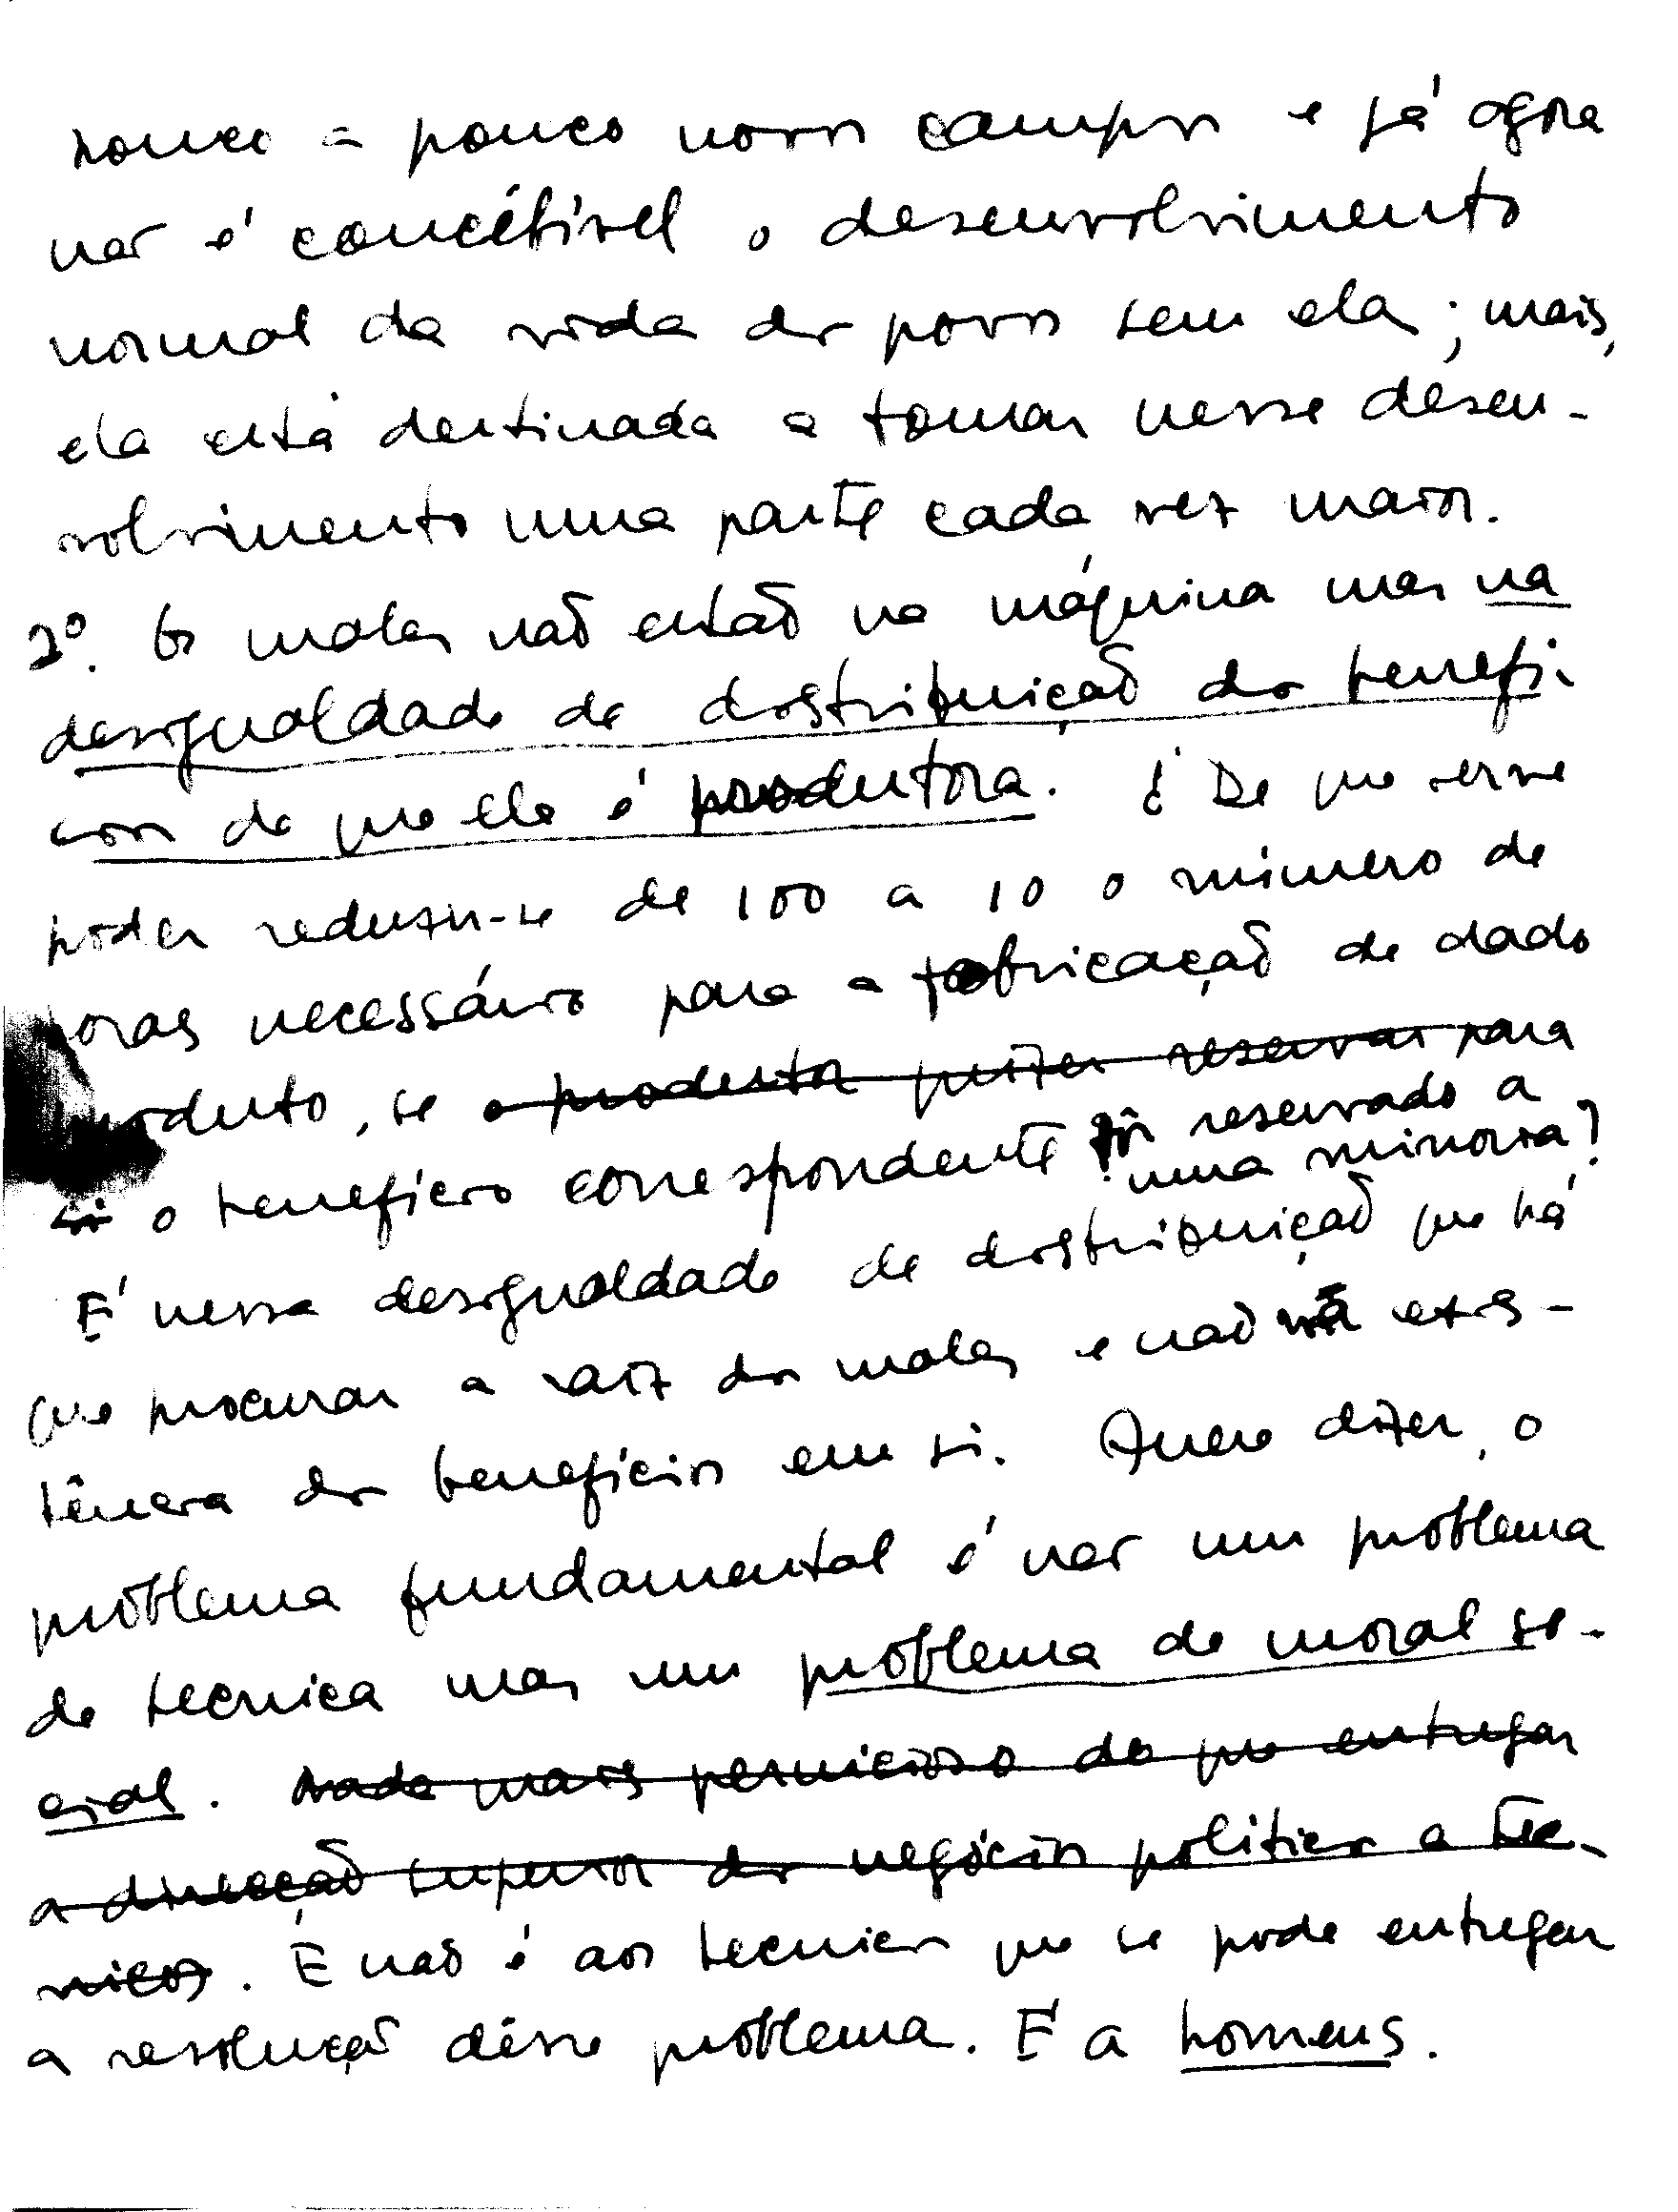 pouco a pouco novos campos e já agora
não é concebível o desenvolvimento
normal da vida dos povos sem ela; mais,
ela está destinada a tomar nesse desen-
volvimento uma parte cada vez maior.
2º. Os males não estão na máquina mas na
desigualdade de distribuição dos benefí-
cios de que ela é produtora. ¿ De que serve
poder reduzir-se de 100 a 10 o número de
horas necessário para a fabricação de dado
produto, se o produtor quizer reservar para
si o benefício correspondente fôr reservado a
uma minoria?
É nessa desigualdade de distribuição que há
que procurar a raiz dos males e não na exis-
tência dos benefícios em si. Quere dizer, o
problema fundamental é não um problema
de tecnica mas um problema de moral so-
cial. Nada mais pernicioso do que entregar
a direcção superior dos negócios politicos a téc-
nicos. E não é aos tecnicos que se pode entregar
a resolução dêsse problema. É a homens.